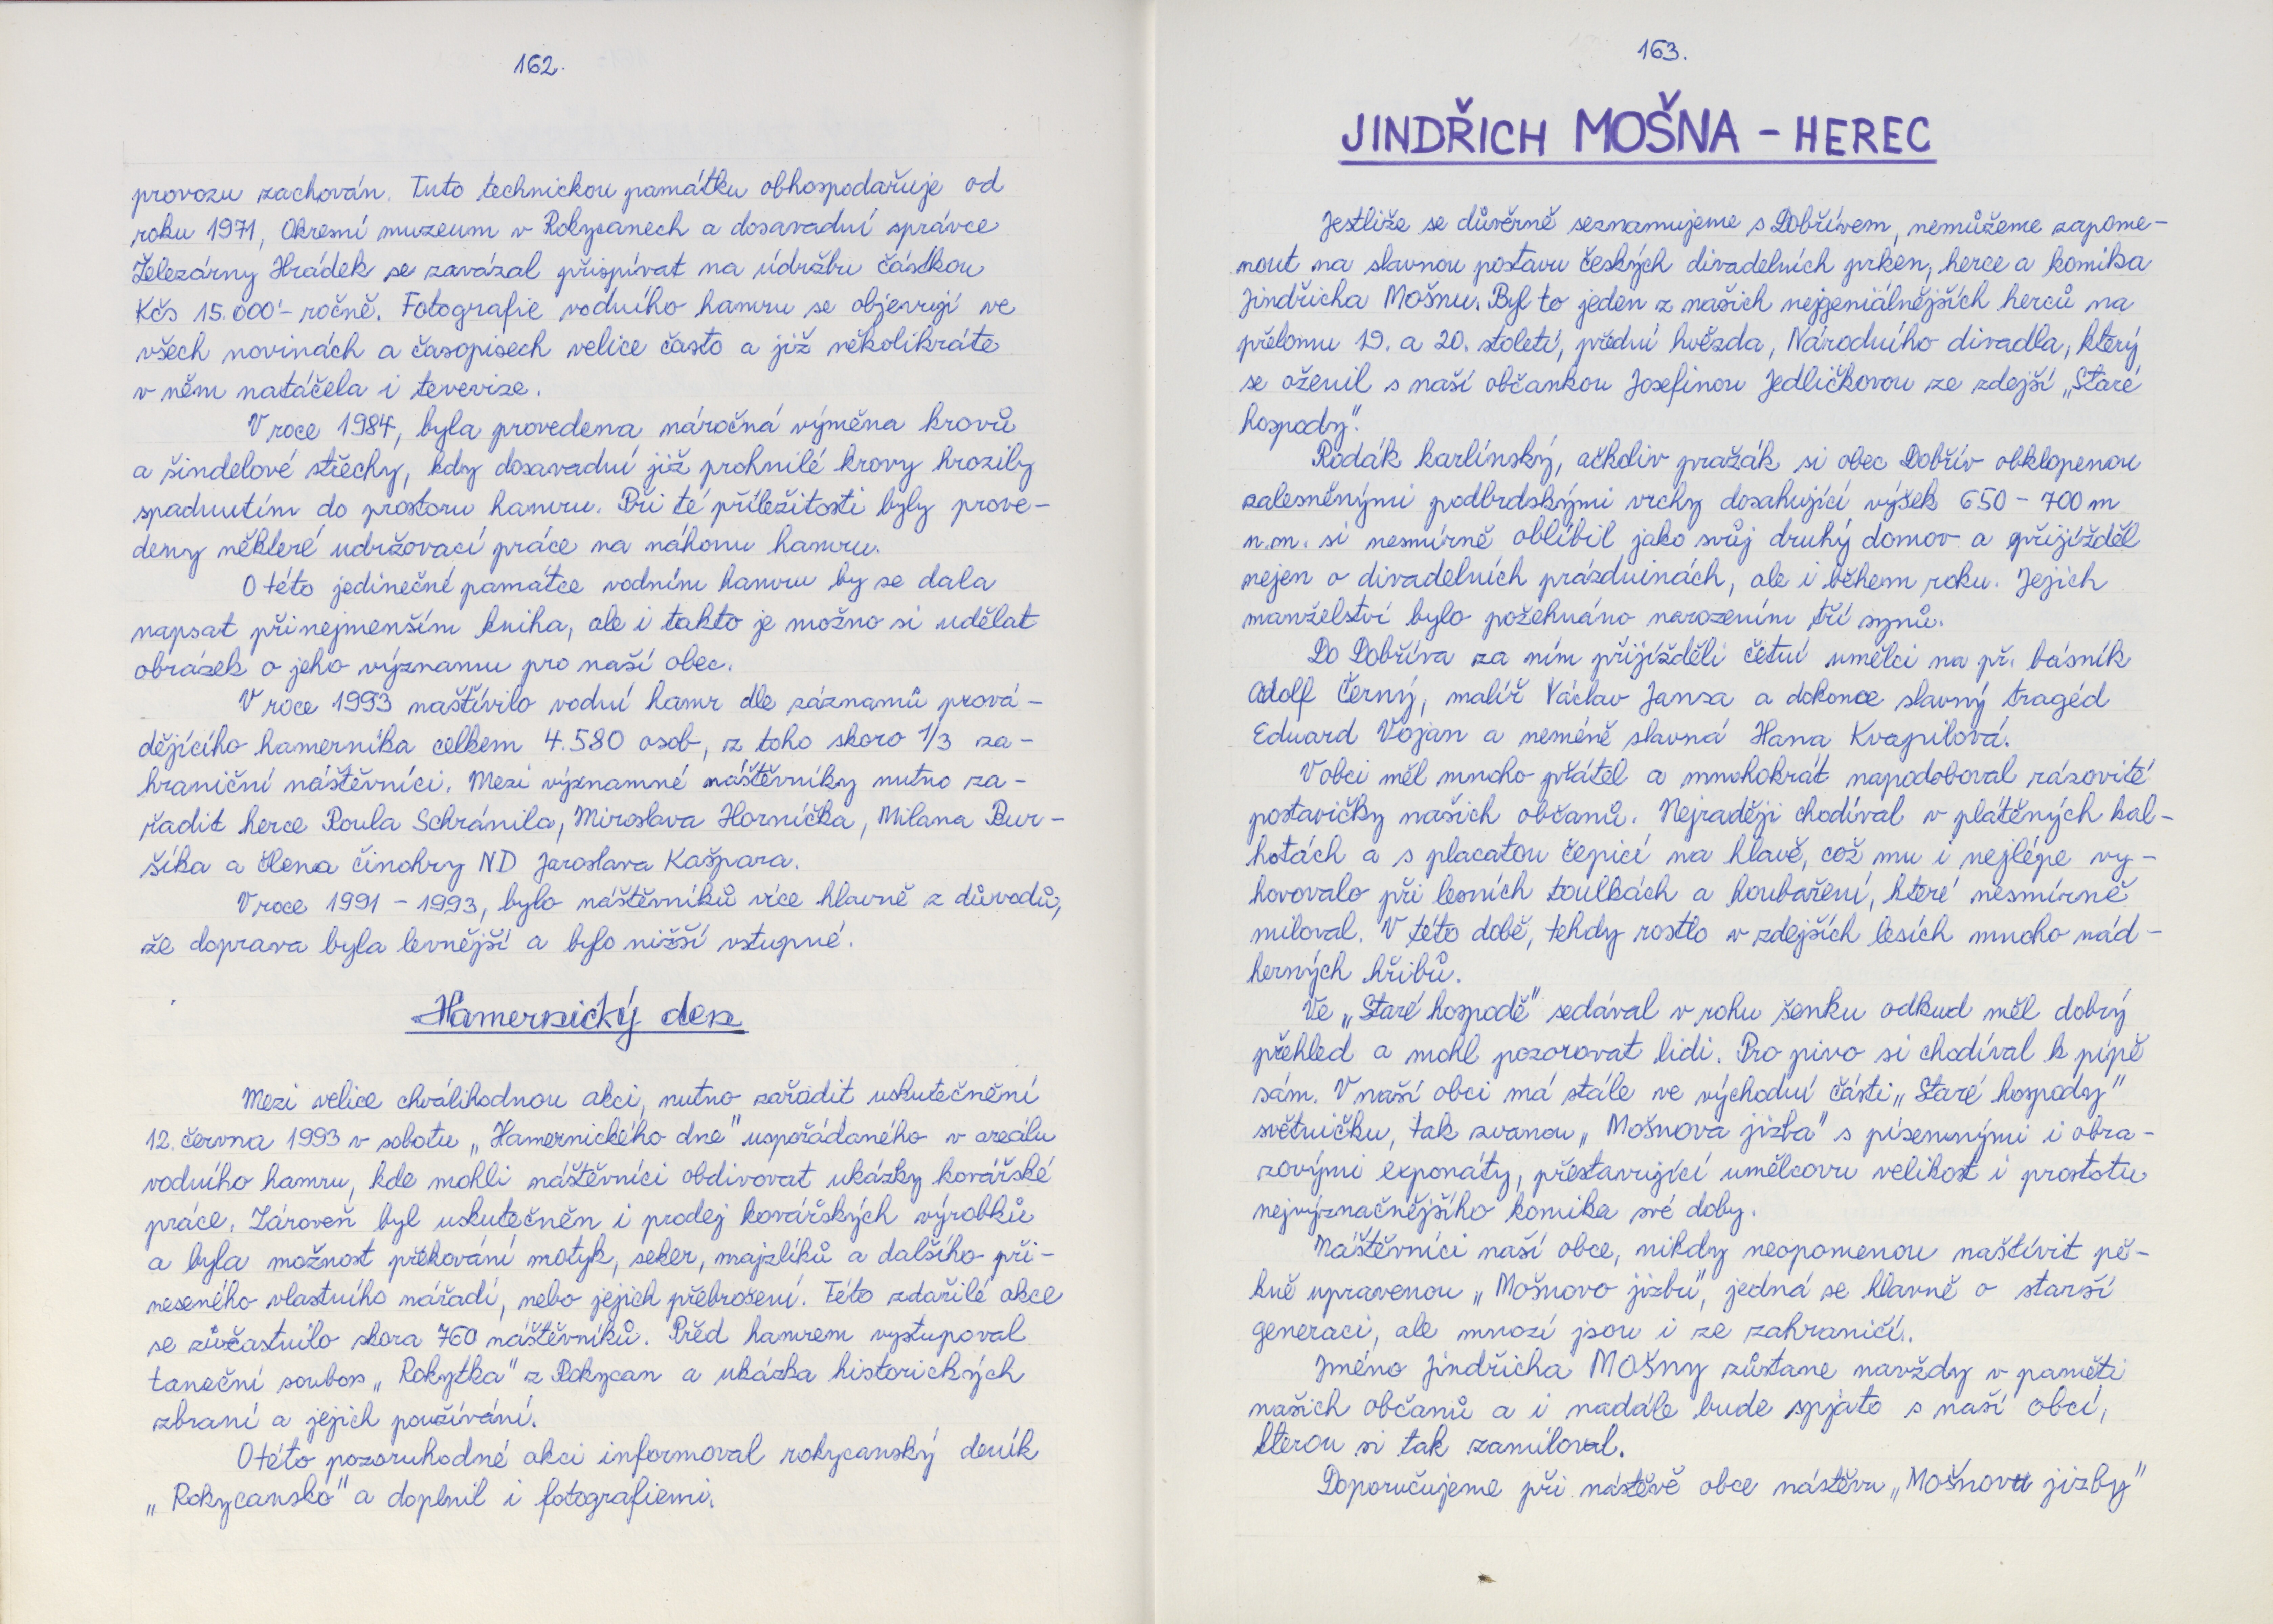 162.
provozu zachován. Tuto technickou památku obhospodařuje od
roku 1971, Okresní muzeum v Rokycanech a dosavadní správce
Železárny Hrádek se zavázal přispívat na údržbu částkou
Kčs 15.000'- ročně. Fotografie vodního hamru se objevují ve
všech novinách a časopisech velice často a již několikráte
v něm natáčela i tevevize.
V roce 1984, byla provedena náročná výměna krovů
a šindelové střechy, kdy dosavadní již prohnilé krovy hrozily
spadnutím do prostoru hamru. Při té příležitosti byly prove-
deny některé udržovací práce na náhonu hamru.
O této jedinečné památce vodním hamru by se dala
napsat přinejmenším kniha, ale i takto je možno si udělat
obrázek o jeho významu pro naší obec.
V roce 1993 naštívilo vodní hamr dle záznamů prová-
dějícího hamerníka celkem 4.580 osob, z toho skoro 1/3 za-
hraniční náštěvníci. Mezi významné náštěvníky nutno za-
řadit herce Raula Schránila, Miroslava Horníčka, Milana Bur-
šíka a člena činohry ND Jaroslava Kašpara.
V roce 1991 - 1993, bylo náštěvníků více hlavně z důvodů,
že doprava byla levnější a bylo nižší vstupné.
Hamernický den
Mezi velice chválihodnou akci, nutno zařadit uskutečnění
12. června 1993 v sobotu „Hamernického dne" uspořádaného v areálu
vodního hamru, kde mohli náštěvníci obdivovat ukázky kovářské
práce. Zároveň byl uskutečněn i prodej kovářských výrobků
a byla možnost překování motyk, seker, majzlíků a dalšího při-
neseného vlastního nářadí, nebo jejich přebroušení. Této zdařilé akce
se zůčastnilo skora 760 náštěvníků. Před hamrem vystupoval
taneční soubor „Rokytka" z Rokycan a ukázka historických
zbraní a jejich používání.
O této pozoruhodné akci informoval rokycanský deník
„Rokycansko" a doplnil i fotografiemi.
163.
JINDŘICH MOŠNA - HEREC
Jestliže se důvěrně seznamujeme s Dobřívem, nemůžeme zapome-
nout na slavnou postavu českých divadelních prken, herce a komika
Jindřicha Mošnu. Byl to jeden z našich nejgeniálnějších herců na
přelomu 19. a 20. století, přední hvězda, Národního divadla, který
se oženil s naší občankou Josefinou Jedličkovou ze zdejší „Staré
hospody".
Rodák karlínský, ačkoliv pražák si obec Dobřív obklopenou
zalesněnými podbrdskými vrchy dosahující výšek 650 - 700 m
n.m. si nesmírně oblíbil jako svůj druhý domov a přijížděl
nejen o divadelních prázdninách, ale i během roku. Jejich
manželství bylo požehnáno narozením tří synů.
Do Dobříva za ním přijížděli četní umělci na př. básník
Adolf Černý, malíř Václav Jansa a dokonce slavný tragéd
Eduard Vojan a neméně slavná Hana Kvapilová.
V obci měl mnoho přátel a mnohokrát napodoboval rázovité
postavičky našich občanů. Nejraději chodíval v plátěných kal-
hotách a s placatou čepicí na hlavě, což mu i nejlépe vy-
hovovalo při lesních toulkách a houbaření, které nesmírně
miloval. V této době, tehdy rostlo v zdejších lesích mnoho nád-
herných hřibů.
Ve „Staré hospodě" sedával v rohu šenku odkud měl dobrý
přehled a mohl pozorovat lidi. Pro pivo si chodíval k pípě
sám. V naší obci má stále ve východní části „Staré hospody"
světničku, tak zvanou „Mošnova jizba" s písemnými i obra-
zovými exponáty, přestavující umělcovu velikost i prostotu
nejvýznačnějšího komika své doby.
Náštěvníci naší obce, nikdy neopomenou naštívit pě-
kně upravenou „Mošnovo jizbu", jedná se hlavně o starší
generaci, ale mnozí jsou i ze zahraničí.
Jméno Jindřicha MOŠNY zůstane navždy v paměti
našich občanů a i nadále bude spjato s naší obcí,
kterou si tak zamiloval.
Doporučujeme při nástěvě obce nástěvu „Mošnovu jizby"